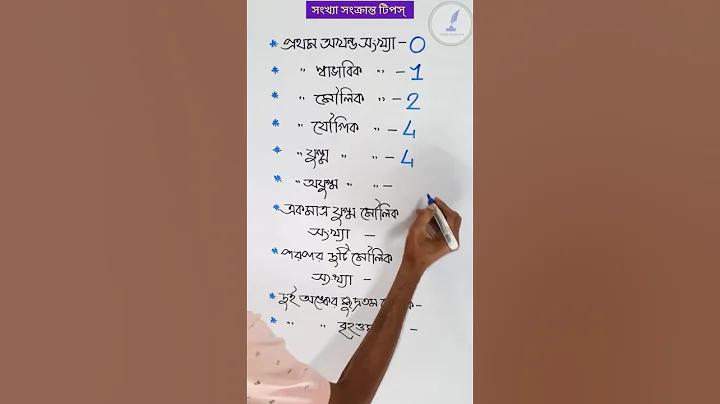 সংখ্যা সংক্রান্ত টিপস্
* প্রথম অখন্ড সংখ্যা - 0
* " স্বাভাবিক " - 1
* " মৌলিক " - 2
* " যৌগিক " - 4
* " যুগ্ম " " - 4
* " অযুগ্ম " " -
* একমাত্র যুগ্ম মৌলিক
সংখ্যা -
* পরপর দুটি মৌলিক
সংখ্যা -
* দুই অঙ্কের ক্ষুদ্রতম -
* " " -